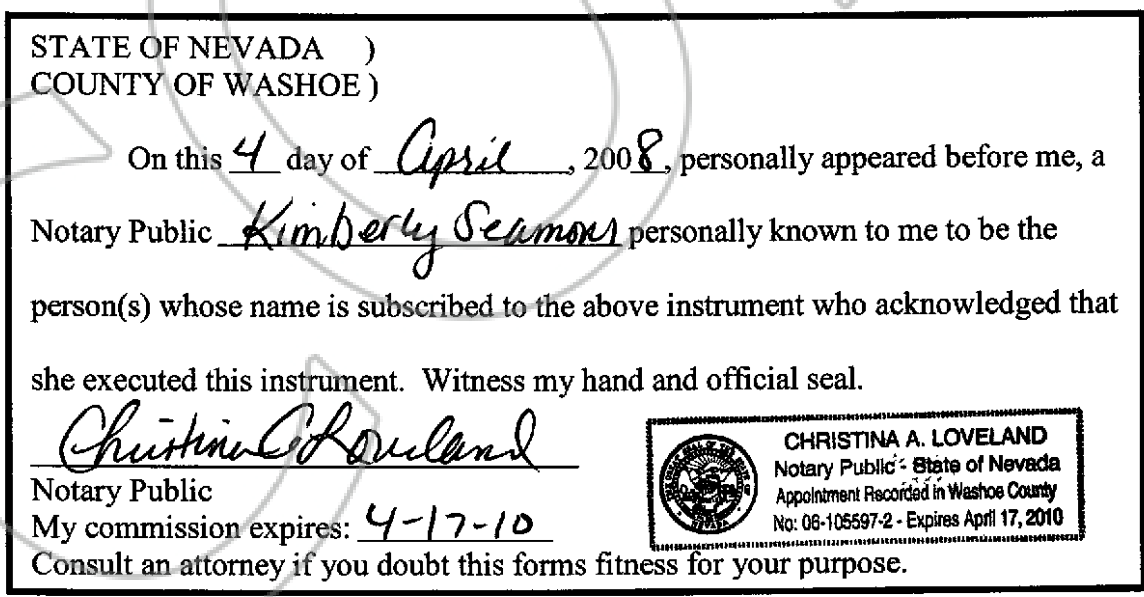 STATE OF NEVADA )
COUNTY OF WASHOE )
On this 4 day of April, 2008, personally appeared before me, a
Notary Public Kimberly Seamons personally known to me to be the
person(s) whose name is subscribed to the above instrument who acknowledged that
she executed this instrument. Witness my hand and official seal.
Christina A Loveland
Notary Public
My commission expires: 4-17-10
Consult an attorney if you doubt this forms fitness for your purpose.
CHRISTINA A. LOVELAND
Notary Public - State of Nevada
Appointment Recorded in Washoe County
No: 06-105597-2 - Expires April 17, 2010
NEVADA